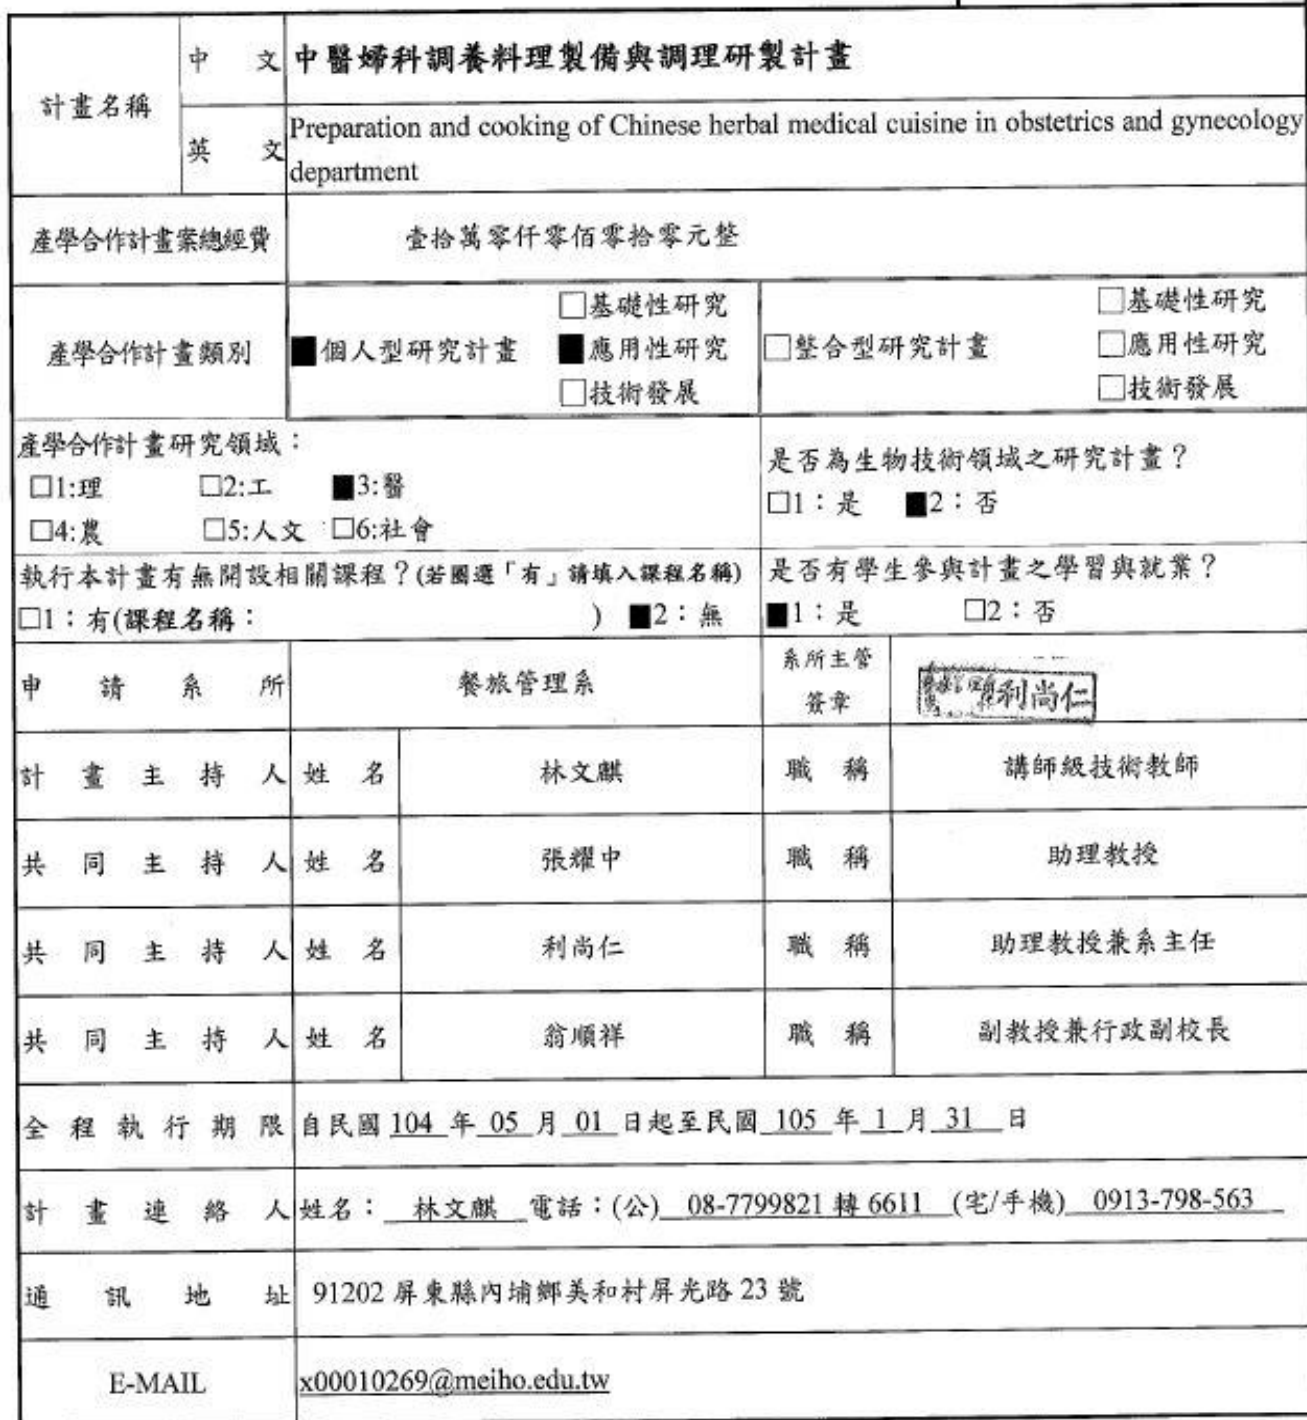 計畫名稱
中 文 中醫婦科調養料理製備與調理研製計畫
英 文 Preparation and cooking of Chinese herbal medical cuisine in obstetrics and gynecology
department
產學合作計畫案總經費 壹拾萬零仟零佰零拾零元整
產學合作計畫類別
■個人型研究計畫
□基礎性研究
■應用性研究
□技術發展
□整合型研究計畫
□基礎性研究
□應用性研究
□技術發展
產學合作計畫研究領域：
□1:理 □2:工 ■3:醫
□4:農 □5:人文 □6:社會
是否為生物技術領域之研究計畫？
□1：是 ■2：否
執行本計畫有無開設相關課程？(若圈選「有」請填入課程名稱)
□1：有(課程名稱： ) ■2：無
是否有學生參與計畫之學習與就業？
■1：是 □2：否
申請系所 餐旅管理系
系所主管
簽章
利尚仁
計畫主持人 姓名 林文麒 職稱 講師級技術教師
共同主持人 姓名 張耀中 職稱 助理教授
共同主持人 姓名 利尚仁 職稱 助理教授兼系主任
共同主持人 姓名 翁順祥 職稱 副教授兼行政副校長
全程執行期限 自民國 104 年 05 月 01 日起至民國 105 年 1 月 31 日
計畫連絡人 姓名： 林文麒 電話：(公) 08-7799821 轉 6611 (宅/手機) 0913-798-563
通訊地址 91202 屏東縣內埔鄉美和村屏光路 23 號
E-MAIL x00010269@meiho.edu.tw